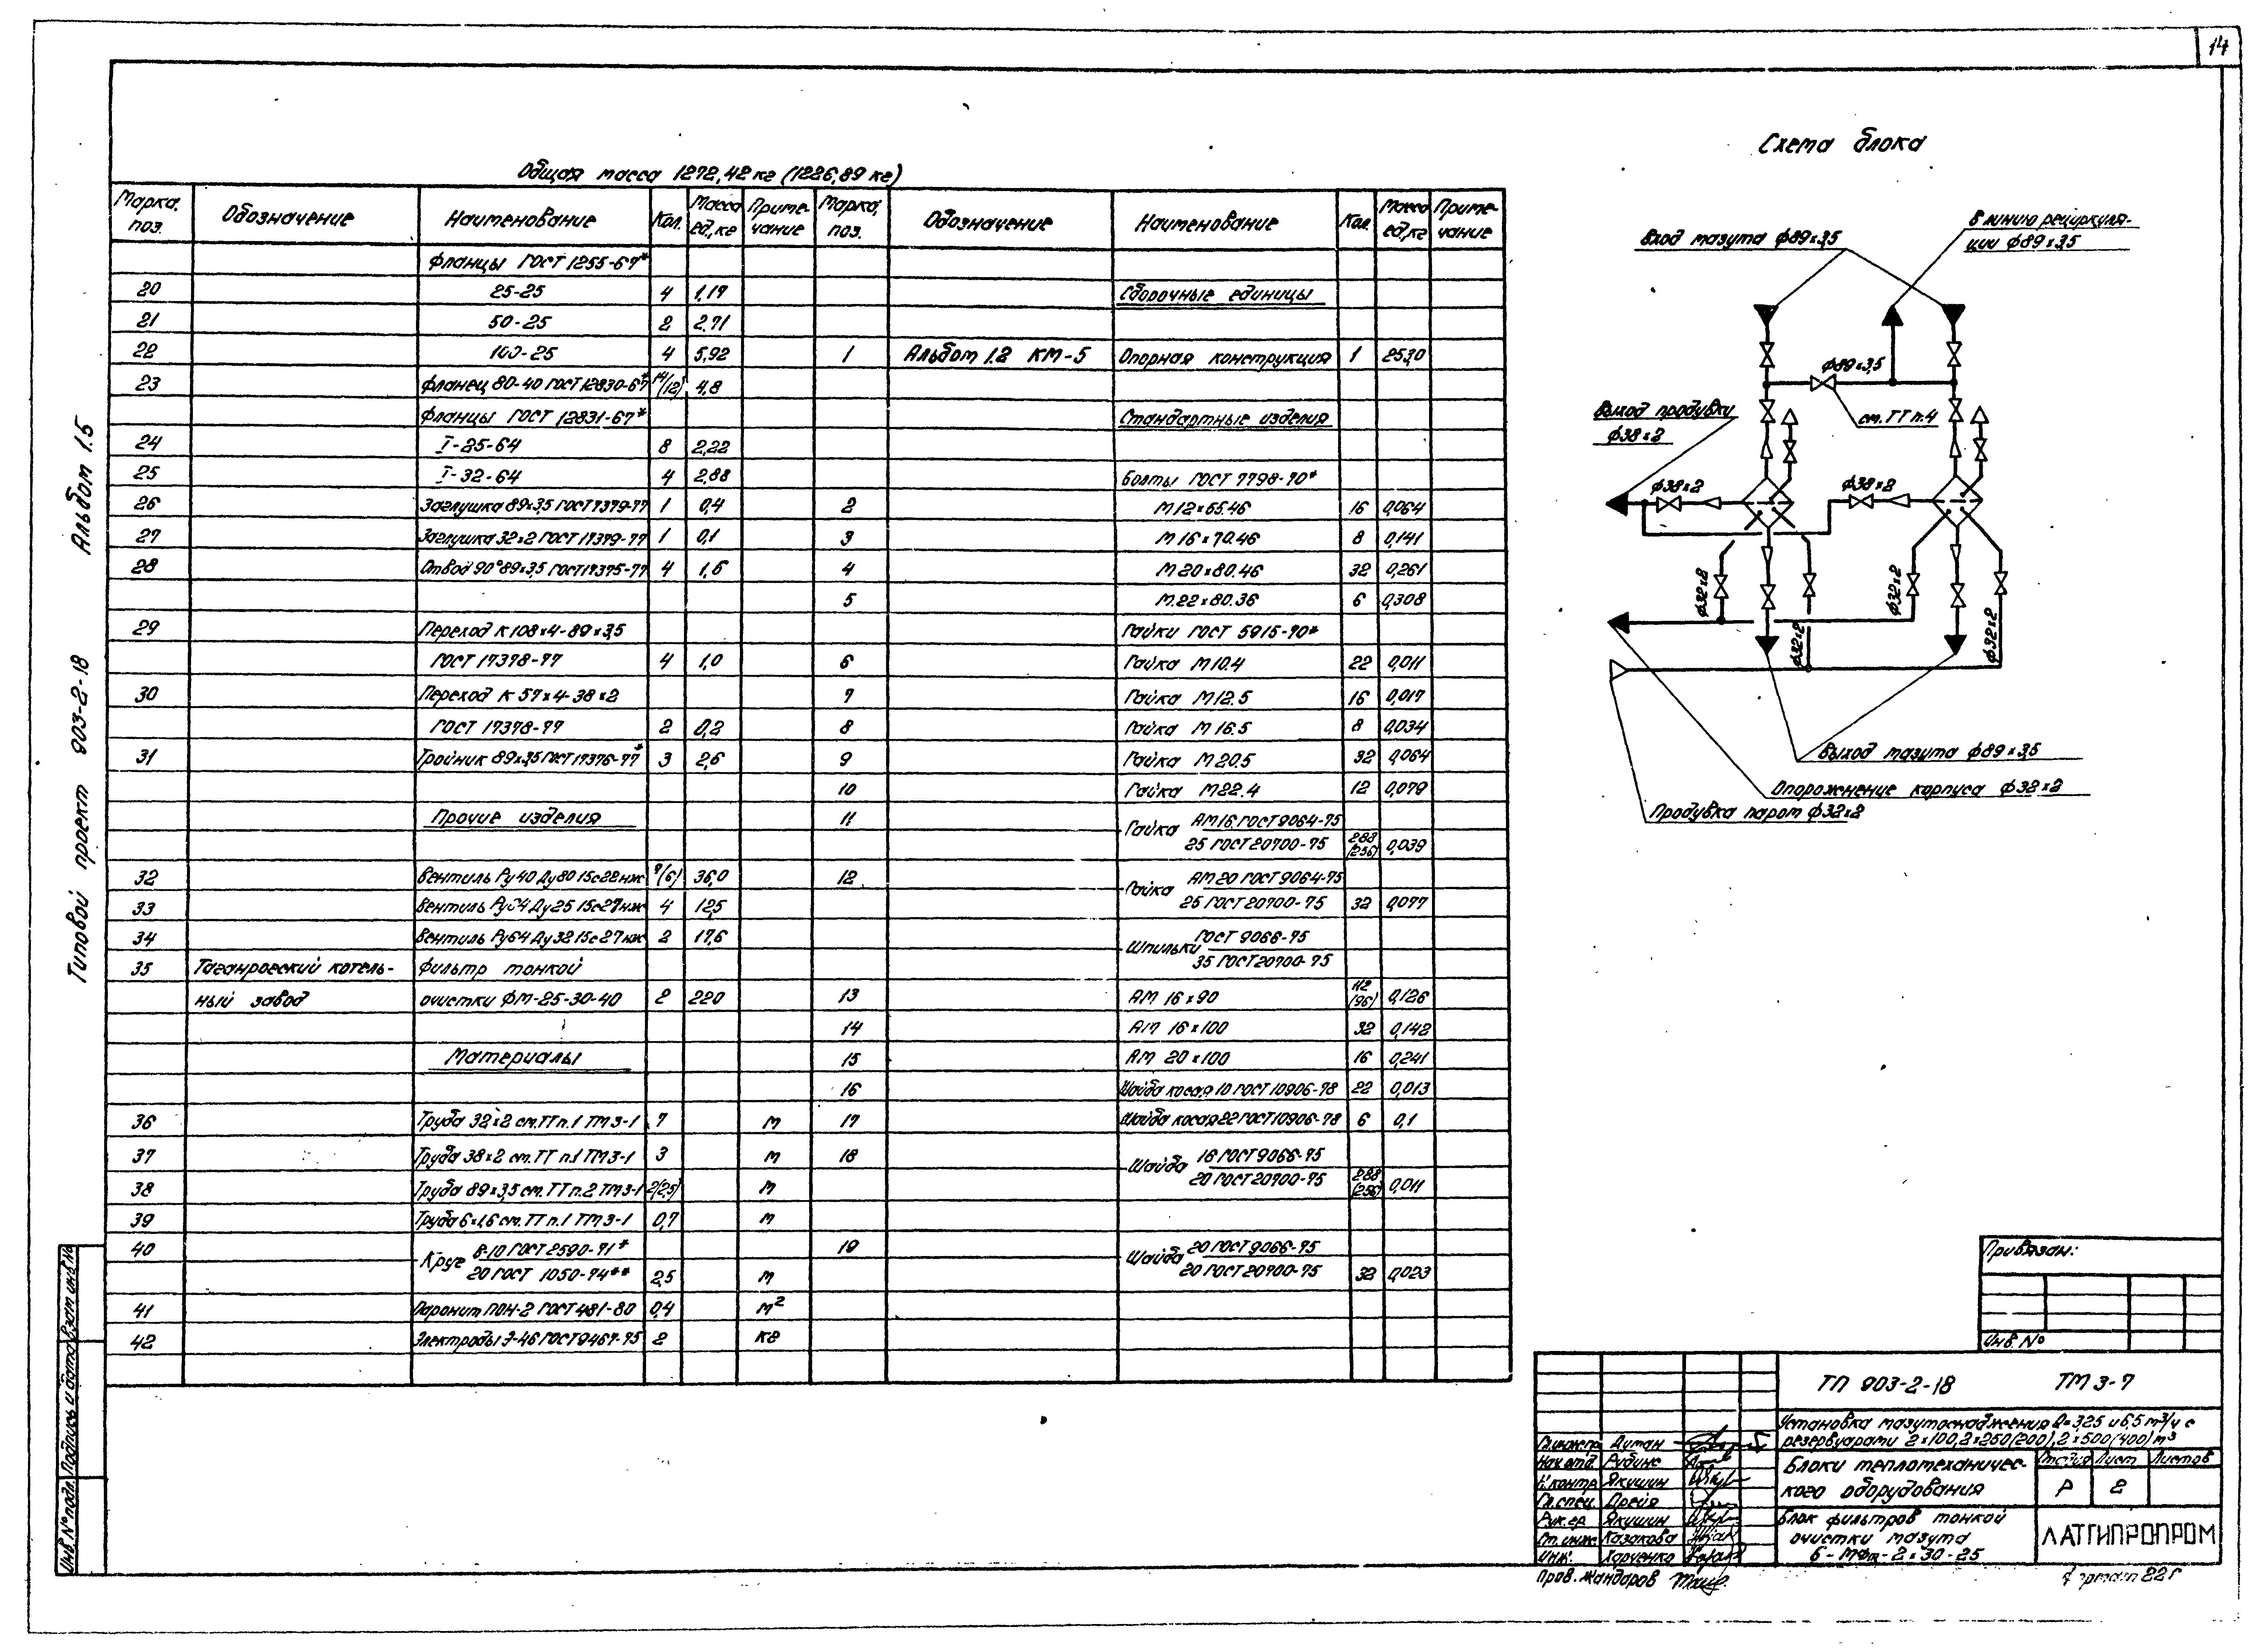 14
Альбом 1.5
Типовой проект 903-2-18
Общая масса 1272,42 кг (1226,89 кг)
Марка, поз. Обозначение Наименование Кол. Масса ед., кг Примечание
Фланцы ГОСТ 1255-67*
20 25-25 4 1,19
21 50-25 2 2,71
22 100-25 4 5,92
23 Фланец 80-40 ГОСТ 12830-67* 14/(12) 4,8
Фланцы ГОСТ 12831-67*
24 I-25-64 8 2,22
25 I-32-64 4 2,88
26 Заглушка 89х3,5 ГОСТ 17379-77 1 0,4
27 Заглушка 32х2 ГОСТ 17379-77 1 0,1
28 Отвод 90° 89х3,5 ГОСТ 17375-77 4 1,6
29 Переход К 108х4-89х3,5
ГОСТ 17378-77 4 1,0
30 Переход К 57х4-38х2
ГОСТ 17378-77 2 0,2
31 Тройник 89х3,5 ГОСТ 17376-77* 3 2,6
Прочие изделия
32 Вентиль Ру40 Ду80 15с22нж 7/(6) 36,0
33 Вентиль Ру64 Ду25 15с27нж 4 12,5
34 Вентиль Ру64 Ду32 15с27нж 2 17,6
35 Таганрогский котель- Фильтр тонкой
ный завод очистки ФМ-25-30-40 2 220
Материалы
36 Труба 32х2 см. ТТ п.1 ТМ3-1 7 м
37 Труба 38х2 см. ТТ п.1 ТМ3-1 3 м
38 Труба 89х3,5 см. ТТ п.2 ТМ3-1 2(2,5) м
39 Труба 6х1,6 см. ТТ п.1 ТМ3-1 0,7 м
40 Круг В-10 ГОСТ 2590-71*
20 ГОСТ 1050-74** 2,5 м
41 Паронит ПОН-2 ГОСТ 481-80 0,4 м²
42 Электроды Э-46 ГОСТ 9467-75 2 кг
Марка, поз. Обозначение Наименование Кол. Масса ед., кг Примечание
Сборочные единицы
1 Альбом 1.2 КМ-5 Опорная конструкция 1 253,0
Стандартные изделия
Болты ГОСТ 7798-70*
2 М12х65.46 16 0,064
3 М16х70.46 8 0,141
4 М20х80.46 32 0,261
5 М.22х80.36 6 0,308
Гайки ГОСТ 5915-70*
6 Гайка М10.4 22 0,011
7 Гайка М12.5 16 0,017
8 Гайка М16.5 8 0,034
9 Гайка М20.5 32 0,064
10 Гайка М22.4 12 0,079
11 Гайка АМ16 ГОСТ 9064-75
25 ГОСТ 20700-75 288 (256) 0,039
12 Гайка АМ20 ГОСТ 9064-75
25 ГОСТ 20700-75 32 0,077
Шпильки ГОСТ 9066-75
35 ГОСТ 20700-75
13 АМ 16х90 112 (96) 0,126
14 АМ 16х100 32 0,142
15 АМ 20х100 16 0,241
16 Шайба косая 10 ГОСТ 10906-78 22 0,013
17 Шайба косая 22 ГОСТ 10906-78 6 0,1
18 Шайба 16 ГОСТ 9066-75
20 ГОСТ 20700-75 288 (256) 0,011
19 Шайба 20 ГОСТ 9066-75
20 ГОСТ 20700-75 32 0,023
Схема блока
Вход мазута ф89х3,5
В линию рециркуля-
ции ф89х3,5
ф89х3,5
см. ТТ п.4
Выход продувки
ф38х2
ф38х2
ф38х2
ф32х2
ф32х2
ф32х2
ф32х2
Выход мазута ф89х3,5
Опорожнение корпуса ф32х2
Продувка паром ф32х2
Привязан:
Инв. №
ТП 903-2-18 ТМ 3-7
Установка мазутоснабжения Q=3,25 и 6,5 м³/ч с
резервуарами 2х100, 2х250(200), 2х500(400) м³
Блоки теплотехничес-
кого оборудования
Стадия Лист Листов
Р 2
Блок фильтров тонкой
очистки мазута
Б-МФт-2х30-25
ЛАТГИПРОПРОМ
Гл.инжпр. Дутан
Нач.отд. Рубинс
Н.контр. Якушин
Гл.спец. Дрейя
Рук.гр. Якушин
Ст.инж. Казакова
Инж. Харченко
Пров. Жандаров
Формат 22Г
Инв. № подл. Подпись и дата Взам. инв. №